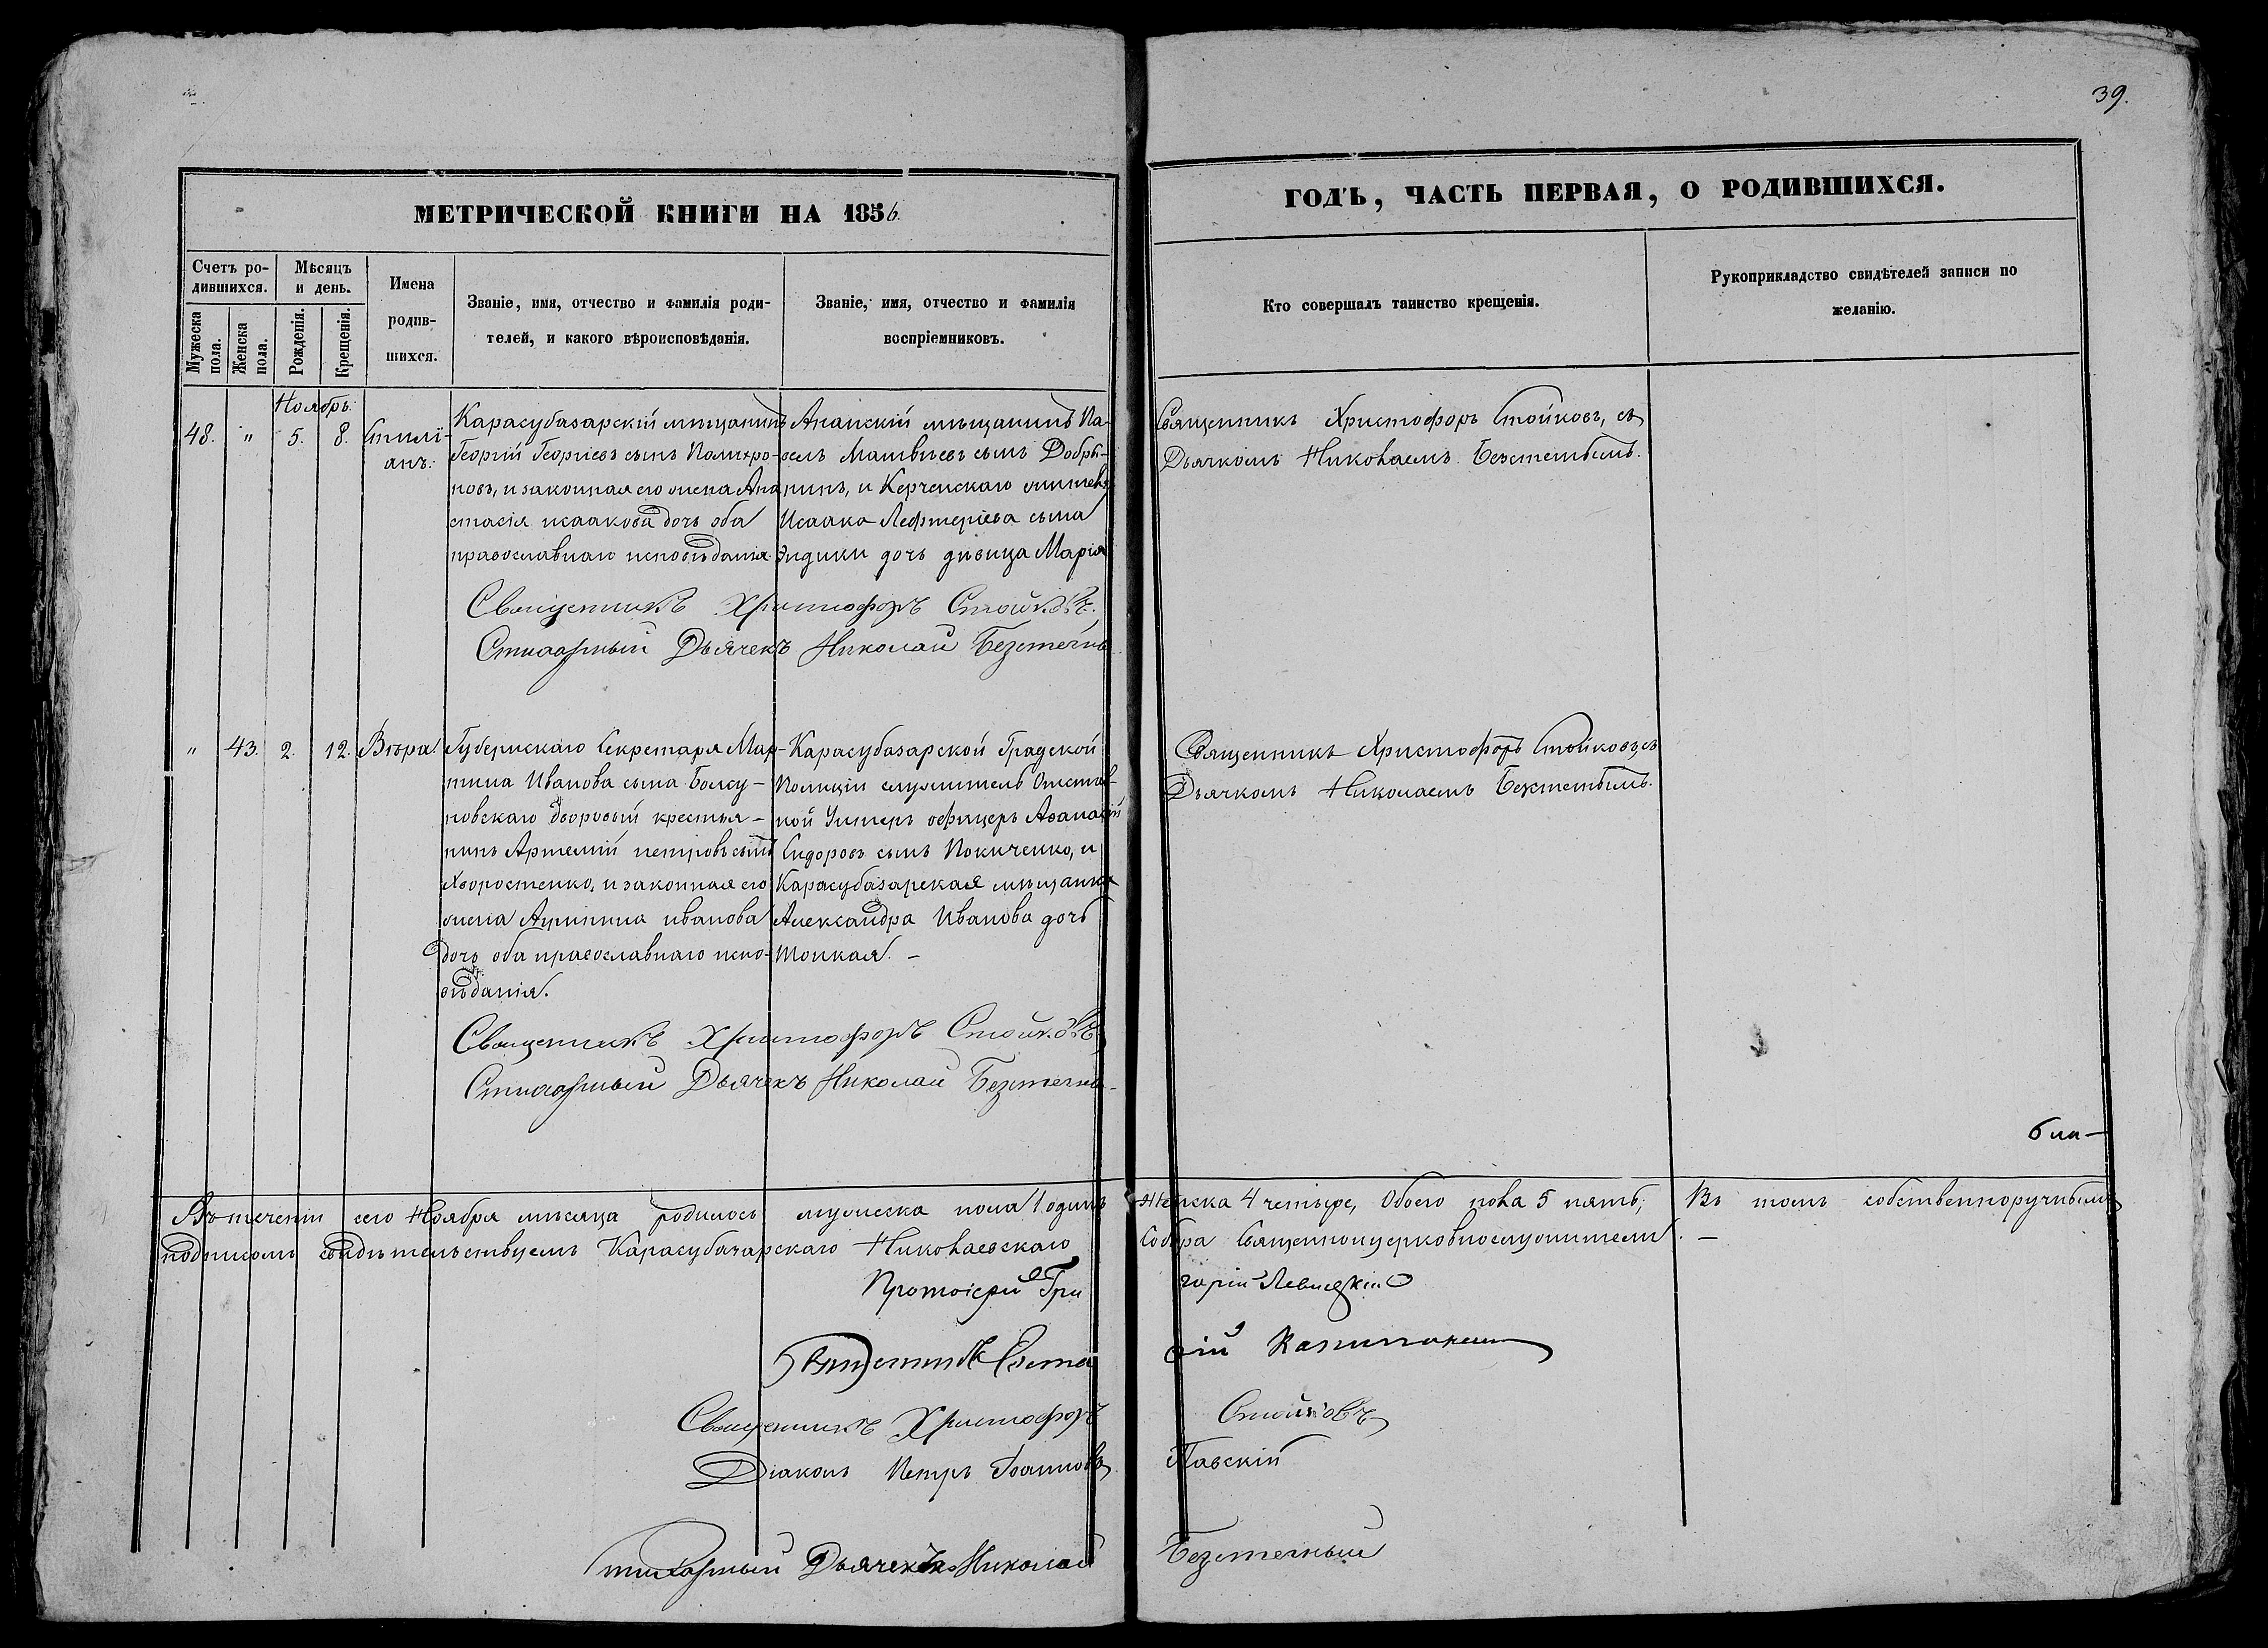 39.
МЕТРИЧЕСКОЙ КНИГИ НА 1856
ГОДЪ, ЧАСТЬ ПЕРВАЯ, О РОДИВШИХСЯ.
Счетъ ро-
дившихся.
Мужеска пола.
Женска пола.
Мѣсяцъ
и день.
Рожденія.
Крещенія.
Имена
родив-
шихся.
Званіе, имя, отчество и фамилія роди-
телей, и какого вѣроисповѣданія.
Званіе, имя, отчество и фамилія
воспріемниковъ.
Кто совершалъ таинство крещенія.
Рукоприкладство свидѣтелей записи по
желанію.
Ноябрь.
48. " 5. 8.
Стилі-
анъ.
Карасубазарскій мѣщанинъ
Георгій Георгіевъ сынъ Полихро-
новъ, и законная его жена Ана
стасія исаакова дочь оба
православнаго исповѣданія.
Анапскій мѣщанинъ Па-
велъ Матвѣевъ сынъ Добры-
нинъ, и Керченскаго жителя
Исаака Лефтеріева сына
дочь дѣвица Марія
Священникъ Христофоръ Стойковъ, съ
Дьячкомъ Николаемъ
Священникъ Христофоръ Стойковъ.
Стихарный Дьячекъ Николай
" 43. 2. 12. Вѣра.
Губернскаго Секретаря Мар-
тина Иванова сына Болсу-
новскаго дворовый крестья-
нинъ Артемій петровъ сынъ
Хворостенко, и законная его
жена Агрипина иванова
дочь оба православнаго испо-
вѣданія.
Карасубазарской Градской
Полиціи служитель Отстав-
ной Унтеръ офицеръ Афанасій
Сидоровъ сынъ Покиченко, и
Карасубазарская мѣщанка
Александра Иванова дочь
Тонкая. -
Священникъ Христофоръ Стойковъ, съ
Дьячкомъ Николаемъ
Священникъ Христофоръ Стойковъ
Стихарный Дьячекъ Николай
Въ теченіи сего Ноября мѣсяца родилось мужеска пола 1 одинъ Женска 4 четыре, Обоего пола 5 пять; Въ томъ собственноручнымъ
подписомъ свидѣтельствуемъ Карасубазарскаго Николаевскаго Собора Священноцерковнослужители. -
Протоіерей Григорій Левицкій
Священникъ
Священникъ Христофоръ Стойковъ
Діаконъ Петръ Іоанновъ Павскій
Стихарный Дьячекъ Николай